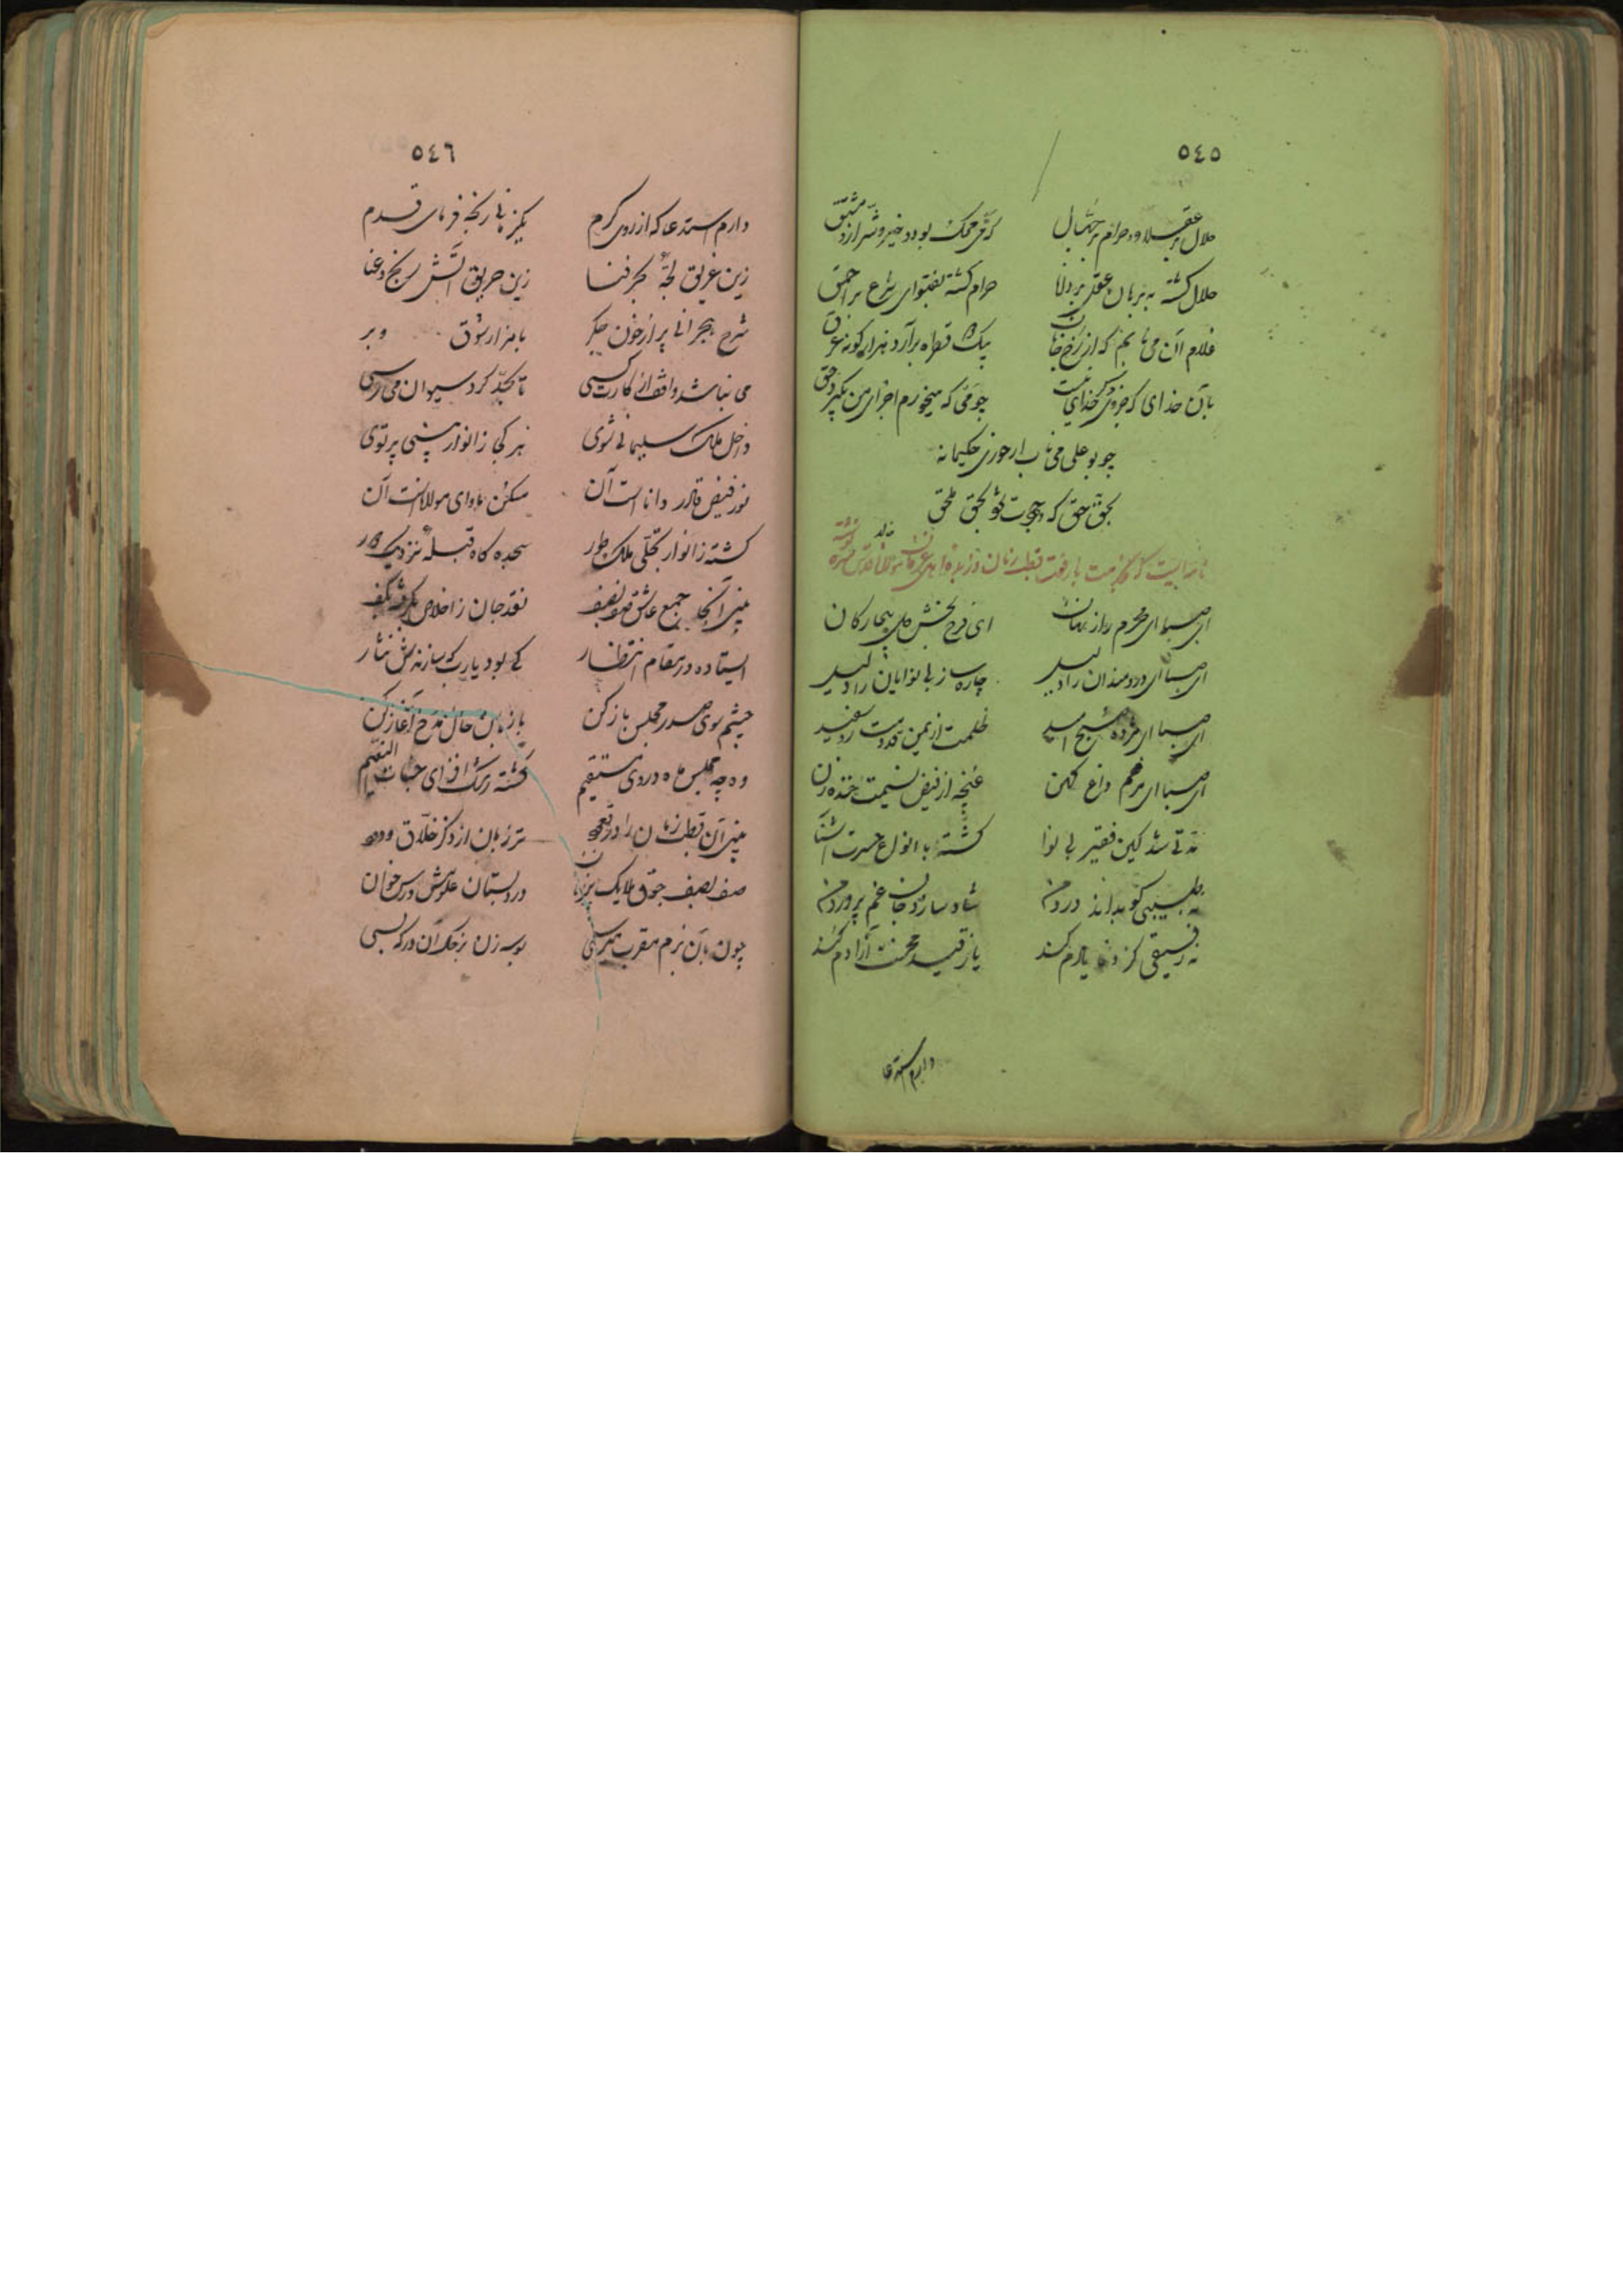 ٥٤٥
حلال بر عقلا و حرام بر جهال که می محک بود و خیر و شر ازو مشتق
حلال گشته به برهان عقل بر دانا حرام گشته بفتوای شرع بر احمق
غلام آن می نابم که از رخ جانان بیک قطره برآرد هزار گونه عرق
بآن خدای که جز وی دگر خدای نیست چو می که میخورم اجزای من بگیرد حق
چو بوعلی می ناب ار خوری حکیمانه
بحق حق که وجودت شود بحق ملحق
ای صبا ای محرم راز نهان ای فرح بخش دل بیچارگان
ای صبا ای دردمندان را دلیل چاره ساز بی نوایان را دلیل
ای صبا ای مژده صبح امید ظلمت از یمن قدومت رو سفید
ای صبا ای مرهم داغ کهن غنچه از فیض نسیمت خنده زن
مدتی شد کین فقیر بی نوا گشته با انواع حسرت آشنا
نه طبیبی کو بداند درد من شاد سازد جان غم پرورد من
نه رفیقی کز وفا یارم کند یا ز قید محنت آزادم کند
دارم استدعا
٥٤٦
دارم استدعا که از روی کرم یکزمانی رنجه فرمای قدم
زین غریق لجه بحر فنا زین حریق آتش رنج و عنا
شرح هجرانی پر از خون جگر با هزار شوق و بر
می نباشد واقف از کارت کسی تا بحد کرد سیوان می رسی
داخل ملک سلیمانی شوی هر کجا ز انوار بینی پرتوی
نور فیض قادر داناست آن مسکن و ماوای مولاناست آن
گشته ز انوار تجلی ملک طور سجده گاه قبله نزدیک و دور
بینی آنجا جمع عاشق صف بصف نقد جان ز اخلاص بگرفته بکف
ایستاده در مقام انتظار کی بود یارب که سازندش نثار
چشم سوی صدر مجلس باز کن با زبان حال مدح آغاز کن
وه چه مجلس ماه در وی مستقیم گشته رشک افزای جنات النعیم
بینی آن قطب زمان را در قعود تر زبان از ذکر خلاق ودود
صف بصف جوق ملایک در دبستان علومش درس خوان
چون بآن بزم مقرب میرسی بوسه زن بر خاک آن درگه بسی